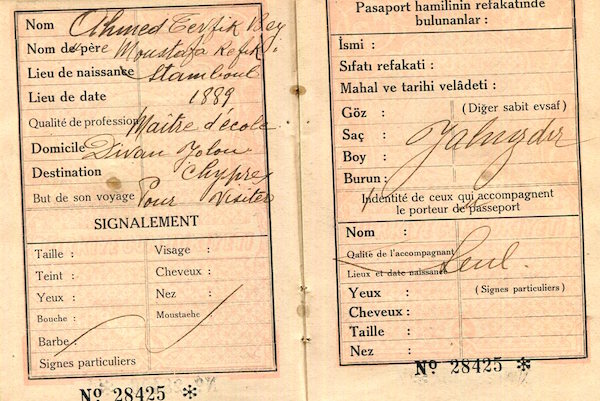 Nom Ahmed Tevfik Bey
Nom de père Moustafa Refik
Lieu de naissance Stamboul
Lieu de date 1889
Qualité de profession Maître d'école
Domicile Divan Yolou
Destination Chypre
But de son voyage Pour Visiter
SIGNALEMENT
Taille : Visage :
Teint : Cheveux :
Yeux : Nez :
Bouche : Moustache
Barbe :
Signes particuliers
Nº 28425 *
Pasaport hamilinin refakatinde
bulunanlar :
İsmi :
Sıfatı refakati :
Mahal ve tarihi velâdeti :
Göz : (Diğer sabit evsaf)
Saç : Yalnızdır
Boy :
Burun :
Indentité de ceux qui accompagnent
le porteur de passeport
Nom :
Qalité de l'accompagnant Seul.
Lieux et date naissance
Yeux : (Signes particuliers)
Cheveux :
Taille :
Nez :
Nº 28425 *